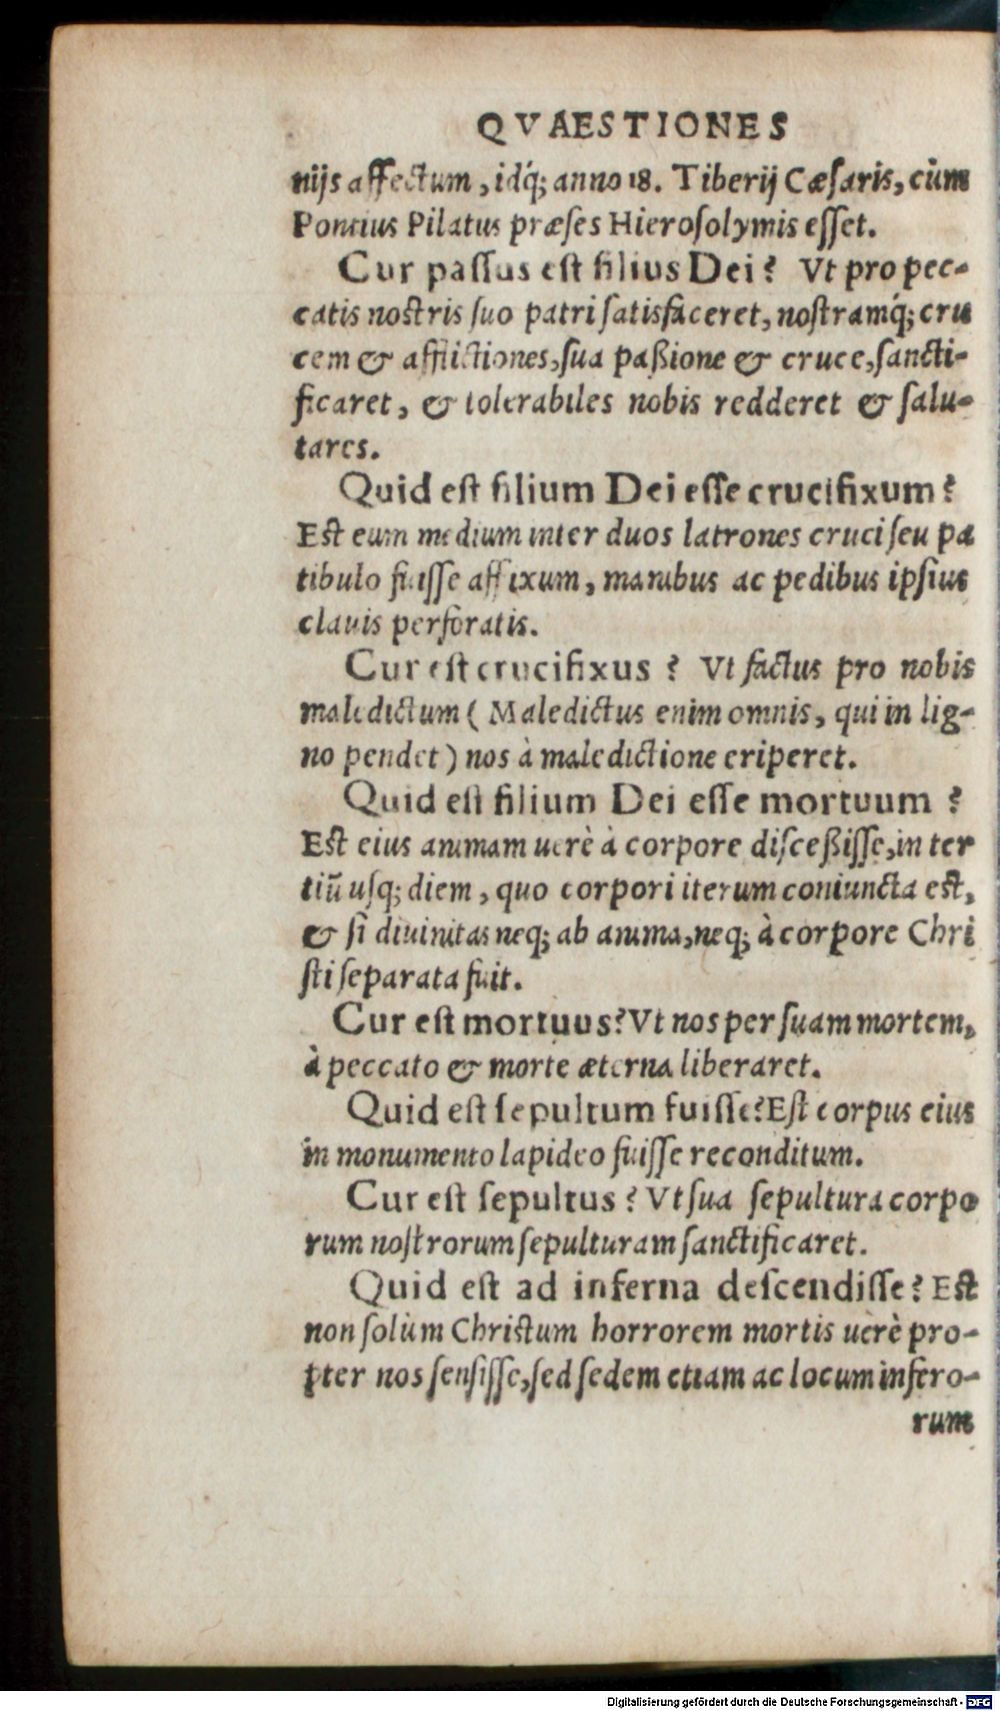 QVAESTIONES
nijs affectum, idq́; anno 18. Tiberij Cæſaris, cùm
Pontius Pilatus præſes Hieroſolymis eſſet.
Cur paſſus eſt filius Dei? Vt pro pec-
catis noſtris ſuo patri ſatisfaceret, noſtramq́; cru
cem & afflictiones, ſua paßione & cruce, ſancti-
ficaret, & tolerabiles nobis redderet & ſalu-
tares.
Quid eſt filium Dei eſſe crucifixum?
Eſt eum medium inter duos latrones cruci ſeu pa
tibulo fuiſſe affixum, manibus ac pedibus ipſius
clauis perforatis.
Cur eſt crucifixus? Vt factus pro nobis
maledictum (Maledictus enim omnis, qui in lig-
no pendet) nos à maledictione eriperet.
Quid eſt filium Dei eſſe mortuum?
Eſt eius animam uerè à corpore diſceßiſſe, in ter
tiũ uſq; diem, quo corpori iterum coniuncta eſt,
& ſi diuinitas neq; ab anima, neq; à corpore Chri
ſti ſeparata fuit.
Cur eſt mortuus? Vt nos per ſuam mortem,
à peccato & morte æterna liberaret.
Quid eſt ſepultum fuiſſe? Eſt corpus eius
in monumento lapideo fuiſſe reconditum.
Cur eſt ſepultus? Vt ſua ſepultura corpo
rum noſtrorum ſepulturam ſanctificaret.
Quid eſt ad inferna deſcendiſſe? Eſt
non ſolùm Chriſtum horrorem mortis uerè pro-
pter nos ſenſiſſe, ſed ſedem etiam ac locum infero-
rum
Digitalisierung gefördert durch die Deutsche Forschungsgemeinschaft - DFG